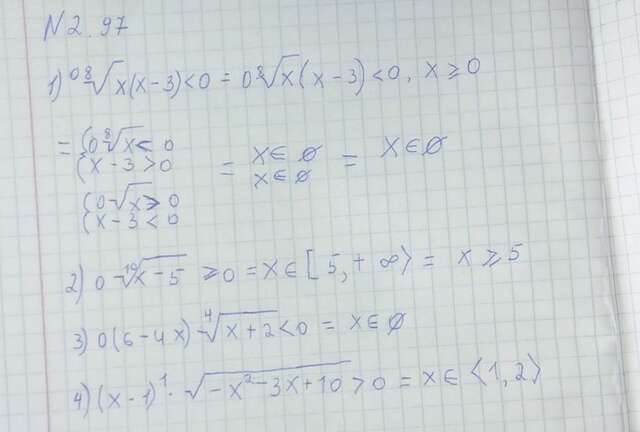 N2.97
1) 0 ⁸√x(x-3)<0 = 0 ⁸√x(x-3)<0, x⩾0
= {0 ⁸√x< 0
{x-3>0 = x∈∅ = x∈∅
x∈∅
{0-√x⩾0
{x-3<0
2) 0-¹⁰√x-5 ⩾0 = x∈[5,+∞⟩ = x⩾5
3) 0(6-4x)-⁴√x+2<0 = x∈∅
4) (x-1)¹·√-x²-3x+10>0 = x∈⟨1,2⟩